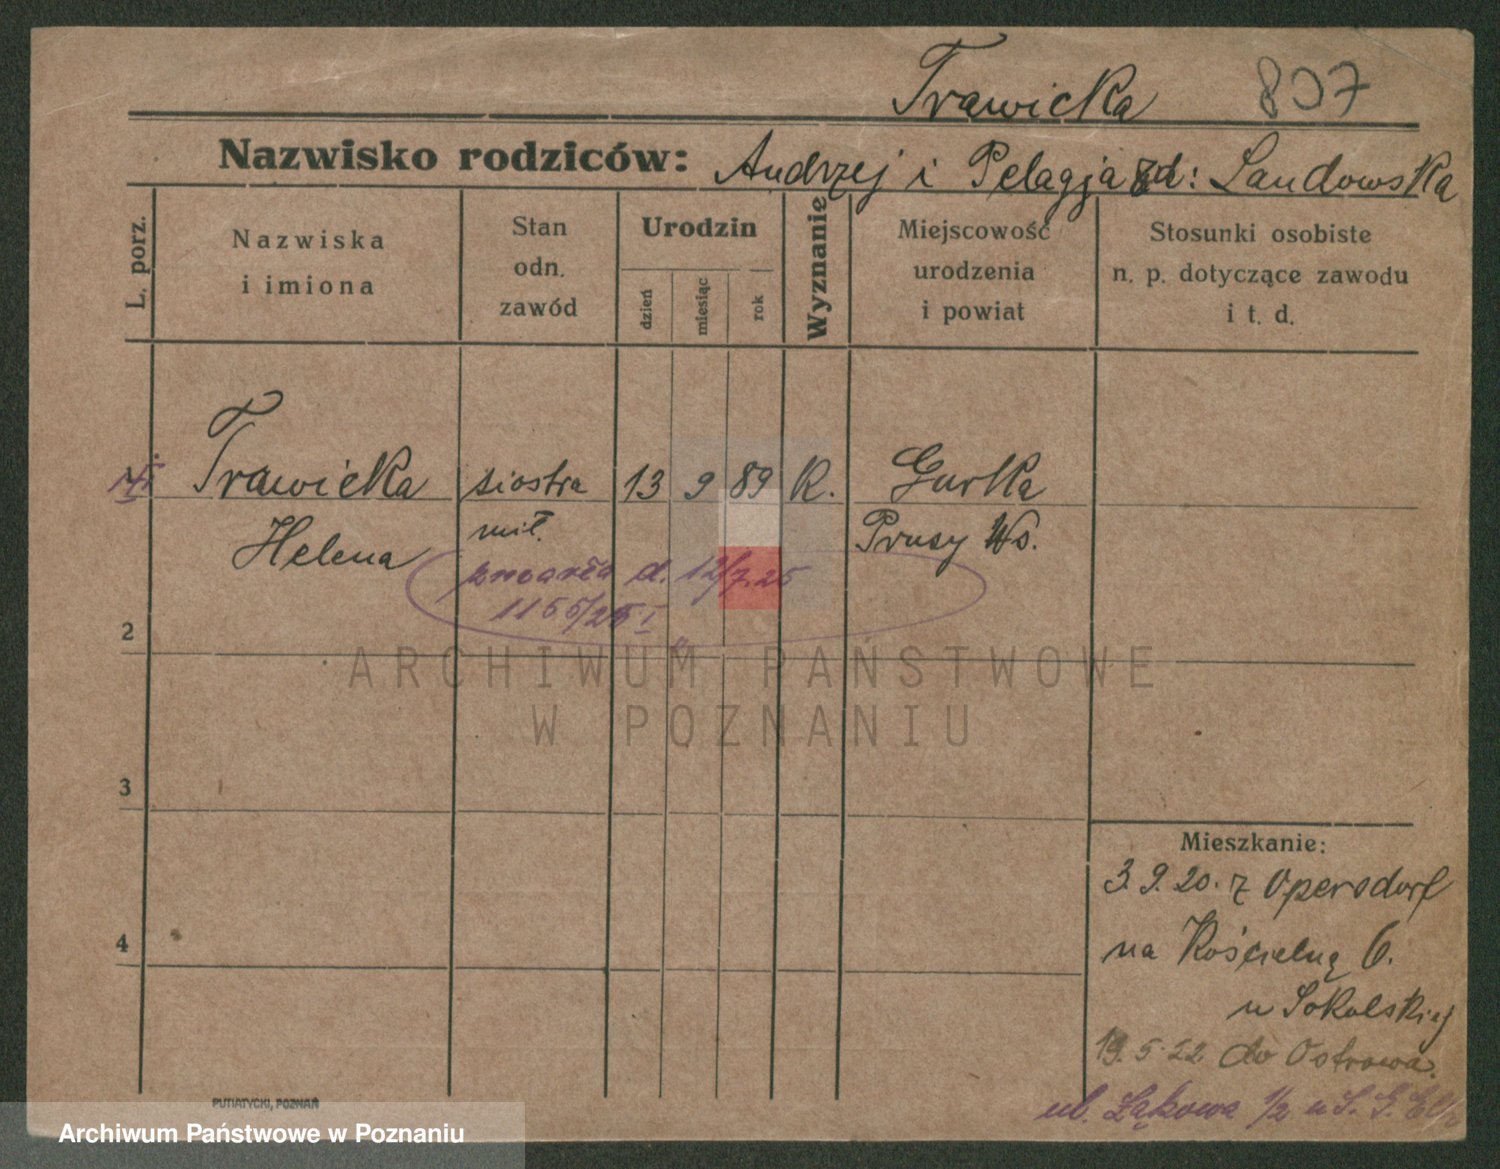 Trawicka 807
Nazwisko rodziców: Andrzej i Pelagja zd: Landowska
L. porz.
Nazwiska
i imiona
Stan
odn.
zawód
Urodzin
dzień
miesiąc
rok
Wyznanie
Miejscowość
urodzenia
i powiat
Stosunki osobiste
n. p. dotyczące zawodu
i t. d.
Trawicka siostra 13 9 89 K. Gurka
Helena mił. Prusy Ws.
zmarła d. 12/7.25
1155/25 I
2
ARCHIWUM PAŃSTWOWE
W POZNANIU
3
4
Mieszkanie:
3.9.20. z Opersdorf
na Kościelną 6.
u Sokolskiej
19.5.22. do Ostrowa.
ul. Łąkowa 1/2 u S. S.
PUTIATYCKI, POZNAŃ
Archiwum Państwowe w Poznaniu